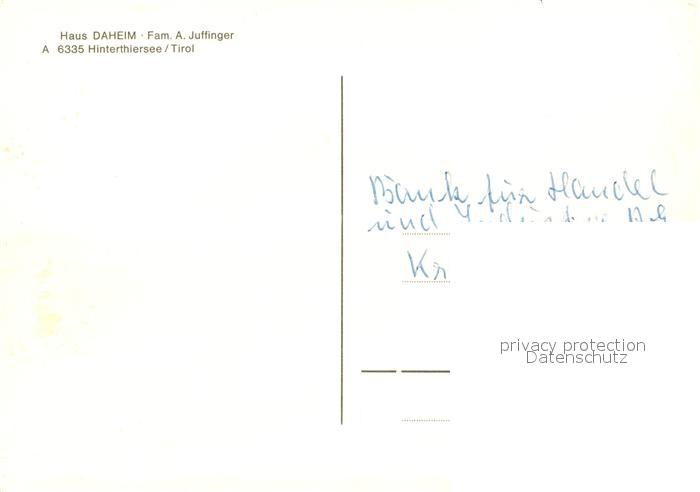 Haus DAHEIM · Fam. A. Juffinger
A 6335 Hinterthiersee / Tirol
Bank für Handel
und
Kr
privacy protection
Datenschutz